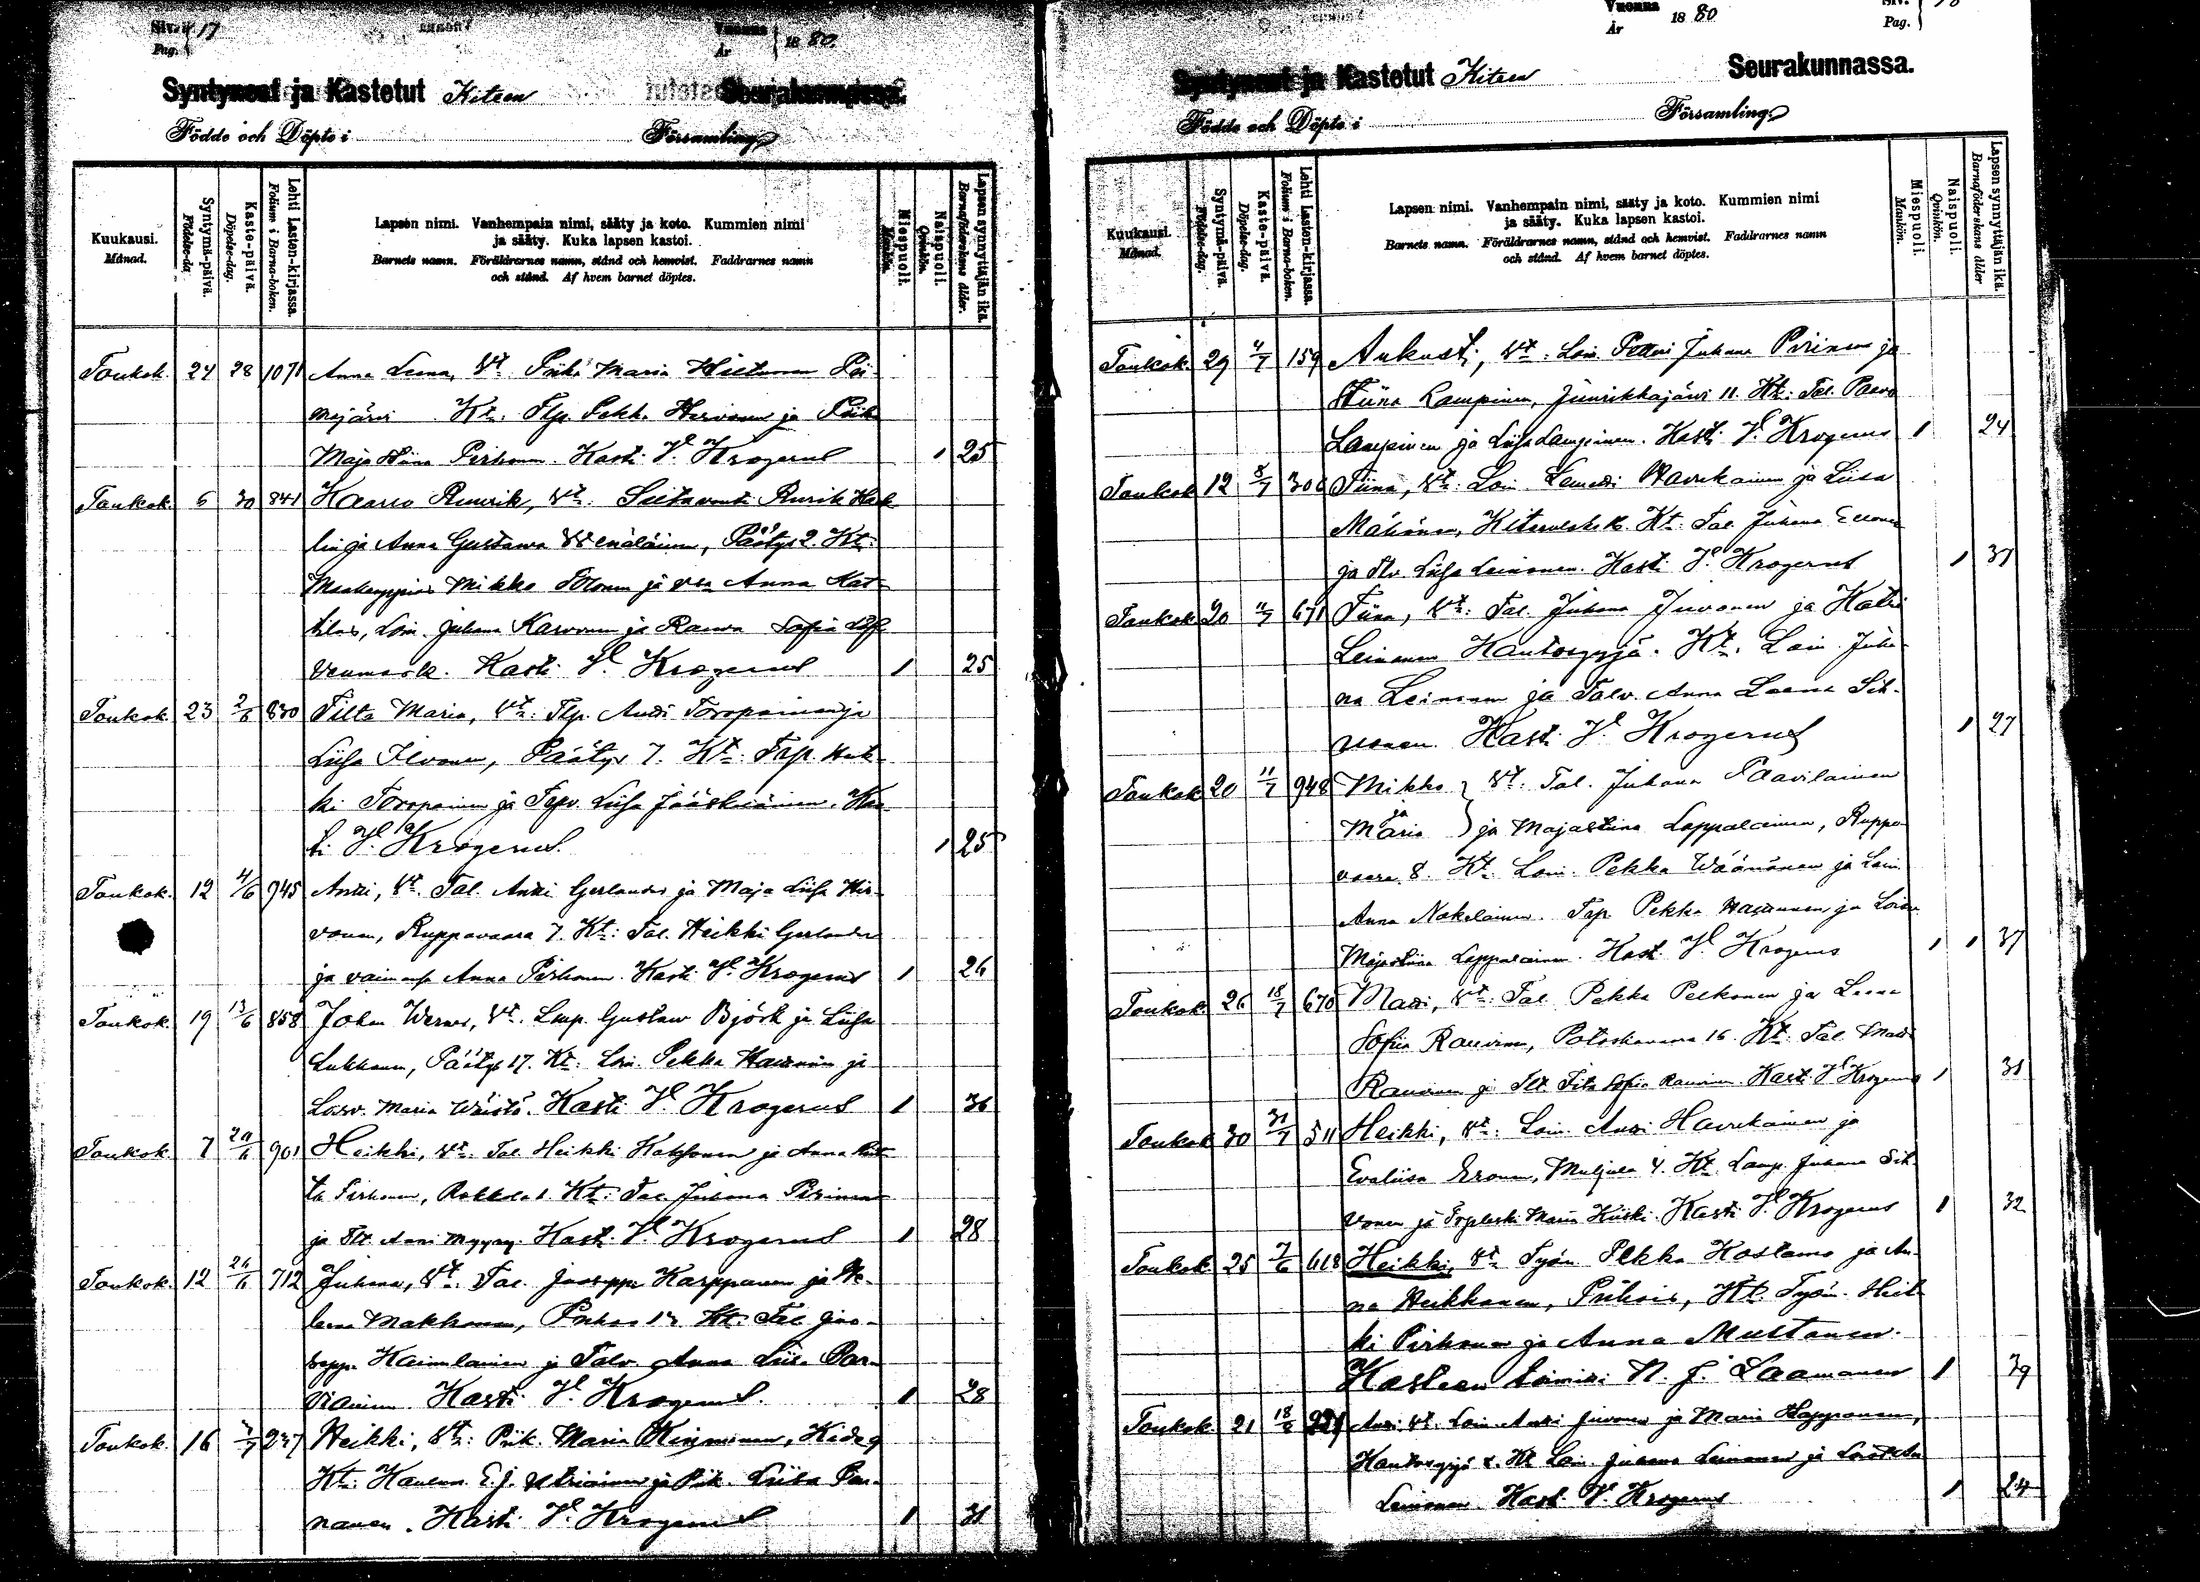 Siv. 17
Pag.
Vuonna
År
1880.
Syntyneet ja Kastetut Kiteen Seurakunnassa.
Födde och Döpte i Församling
Kuukausi.
Månad.
Syntymä-päivä.
Födelse-da
Kaste-päivä.
Döpelse-dag.
Lehti Lasten-kirjassa.
Folium i Barna-boken.
Lapsen nimi. Vanhempain nimi, sääty ja koto. Kummien nimi
ja sääty. Kuka lapsen kastoi.
Barnets namn. Föräldrarnes namn, stånd och hemvist. Faddrarnes namn
och stånd. Af hvem barnet döptes.
Miespuoli.
Mankön.
Naispuoli.
Qvinkön.
Lapsen synnyttäjän ikä.
Barnaföderskans ålder.
Toukok. 24 28 1071 Anna Leena, Vt. Piika Maria Hietanen Poi
mejärvi Kt. Tlp. Pekka Hirvonen ja Piika
Maja Stiina Pirhonen. Kasti V. Krogerus 1 25
Toukok. 6 30 841 Kaarlo Rurik, Vt. Rurik
lin ja Anna Gustava Wenäläinen, Päätys 2. Kt:
Mikko ja Anna Kat
Loin. Juhana Karvonen ja Rouva Sofia
Kasti V. Krogerus 1 25
Toukok. 23 2/6 830 Tilta Maria, Vt: Tlp. Antti Toropainen ja
Liisa Ilvonen, Päätys 7. Kt: Trp. Heik
ki Toropainen ja Trpv. Liisa Jääskeläinen. Kas
ti V. Krogerus. 1 25
Toukok. 12 4/6 945 Antti, Vt. Tal. Antti Gerlander ja Maja Liisa Hir-
vonen, Ruppovaara 7. Kt: Tal. Heikki Gerlander
ja vaimonsa Anna Pirhonen. Kasti V. Krogerus 1 26
Toukok. 19 13/6 858 Johan Werner, Vt. Lamp. Gustaw Björk ja Liisa
Lukkanen, Päätys 17. Kt. Loin. Pekka ja
Loisv. Maria Wäistö. Kasti V. Krogerus 1 36
Toukok. 7 901 Heikki, Vt. Tal. Heikki Kakkonen ja Anna Riit
ta Pirhonen, Rokkala 1. Kt: Tal. Juhana Pirinen
ja Tlt. Anni Myyry. Kasti V. Krogerus 1 28
Toukok. 12 712 Juhana, Vt: Tal. Jooseppi Karppanen ja He
lena Makkonen, Puhos 12 Kt: Tal. Joo-
seppi Kaimulainen ja Talv. Anna Liisa Par-
viainen. Kasti V. Krogerus. 1 28
Toukok. 16 237 Heikki, Vt: Piik. Maria Kinnunen, Kide 9
Kt: E. J. ja Piik. Liisa Pan-
nanen. Kasti V. Krogerus 1 31
Vuonna
År
1880
Siv.
Pag.
Syntyneet ja Kastetut Kiteen Seurakunnassa.
Födde och Döpte i Församling
Kuukausi.
Månad.
Syntymä-päivä.
Födelse-dag.
Kaste-päivä.
Döpelse-dag.
Lehti Lasten-kirjassa.
Folium i Barna-boken.
Lapsen nimi. Vanhempain nimi, sääty ja koto. Kummien nimi
ja sääty. Kuka lapsen kastoi.
Barnets namn. Föräldrarnes namn, stånd och hemvist. Faddrarnes namn
och stånd. Af hvem barnet döptes.
Miespuoli.
Mankön.
Naispuoli.
Qvinkön.
Lapsen synnyttäjän ikä.
Barnaföderskans ålder
Toukok. 29 4/7 159 Aukusti, Vt: Loin. Petteri Juhana Pirinen ja
Stiina Lampinen, Juurikkajärvi 11. Kt: Tal. Paavo
Lampinen ja Liisa Lampinen. Kasti V. Krogerus 1 24
Toukok. 12 8/7 306 Tiina, Vt: Loin. Havukainen ja Liisa
Mähönen, Kt: Tal. Juhana
ja Liisa Leinonen. Kasti V. Krogerus 1 31
Toukok. 20 11/7 671 Tiina, Vt: Tal. Juhana Juvonen ja Katri
Leinonen Kantosyrjä. Kt. Loin. Juha
na Leinonen ja Talv. Anna Leena Sih-
vonen. Kasti V. Krogerus 1 27
Toukok. 20 11/7 948 Mikko Vt. Tal. Juhana Paavilainen
ja
Maria ja Majastiina Lappalainen, Ruppo
vaara 8. Kt. Loin. Pekka Wäänänen ja Loin.
Anna Nokelainen. Trp. Pekka ja
Majastiina Lappalainen. Kasti V. Krogerus 1 1 37
Toukok. 26 18/7 670 Matti, Vt: Tal. Pekka Pelkonen ja Leena
Sofia Rauvinen, Potoskavaara 16. Kt. Tal. Matti
Rauvinen ja Tlt. Sofia Rauvinen. Kasti V. Krogerus 1 31
Toukok. 30 31/7 511 Heikki, Vt: Loin. Antti Havukainen ja
Evaliisa Eronen, Muljula 4. Kt. Lamp. Juhana Sih
vonen ja Maria Kasti V. Krogerus 1 32
Toukok. 25 7/6 618 Heikki, Vt. Työm. Pekka Kostamo ja An
na Heikkonen, Kt. Työm. Heik
ki Pirhonen ja Anna Mustonen.
Kasteen toimitti N. J. Laamanen 1 39
Toukok. 21 18/6 Antti Vt. Loin. Antti Juvonen ja Maria Happonen,
Kantosyrjä Kt. Loin. Juhana Leinonen ja
Leinonen Kasti V. Krogerus 1 24